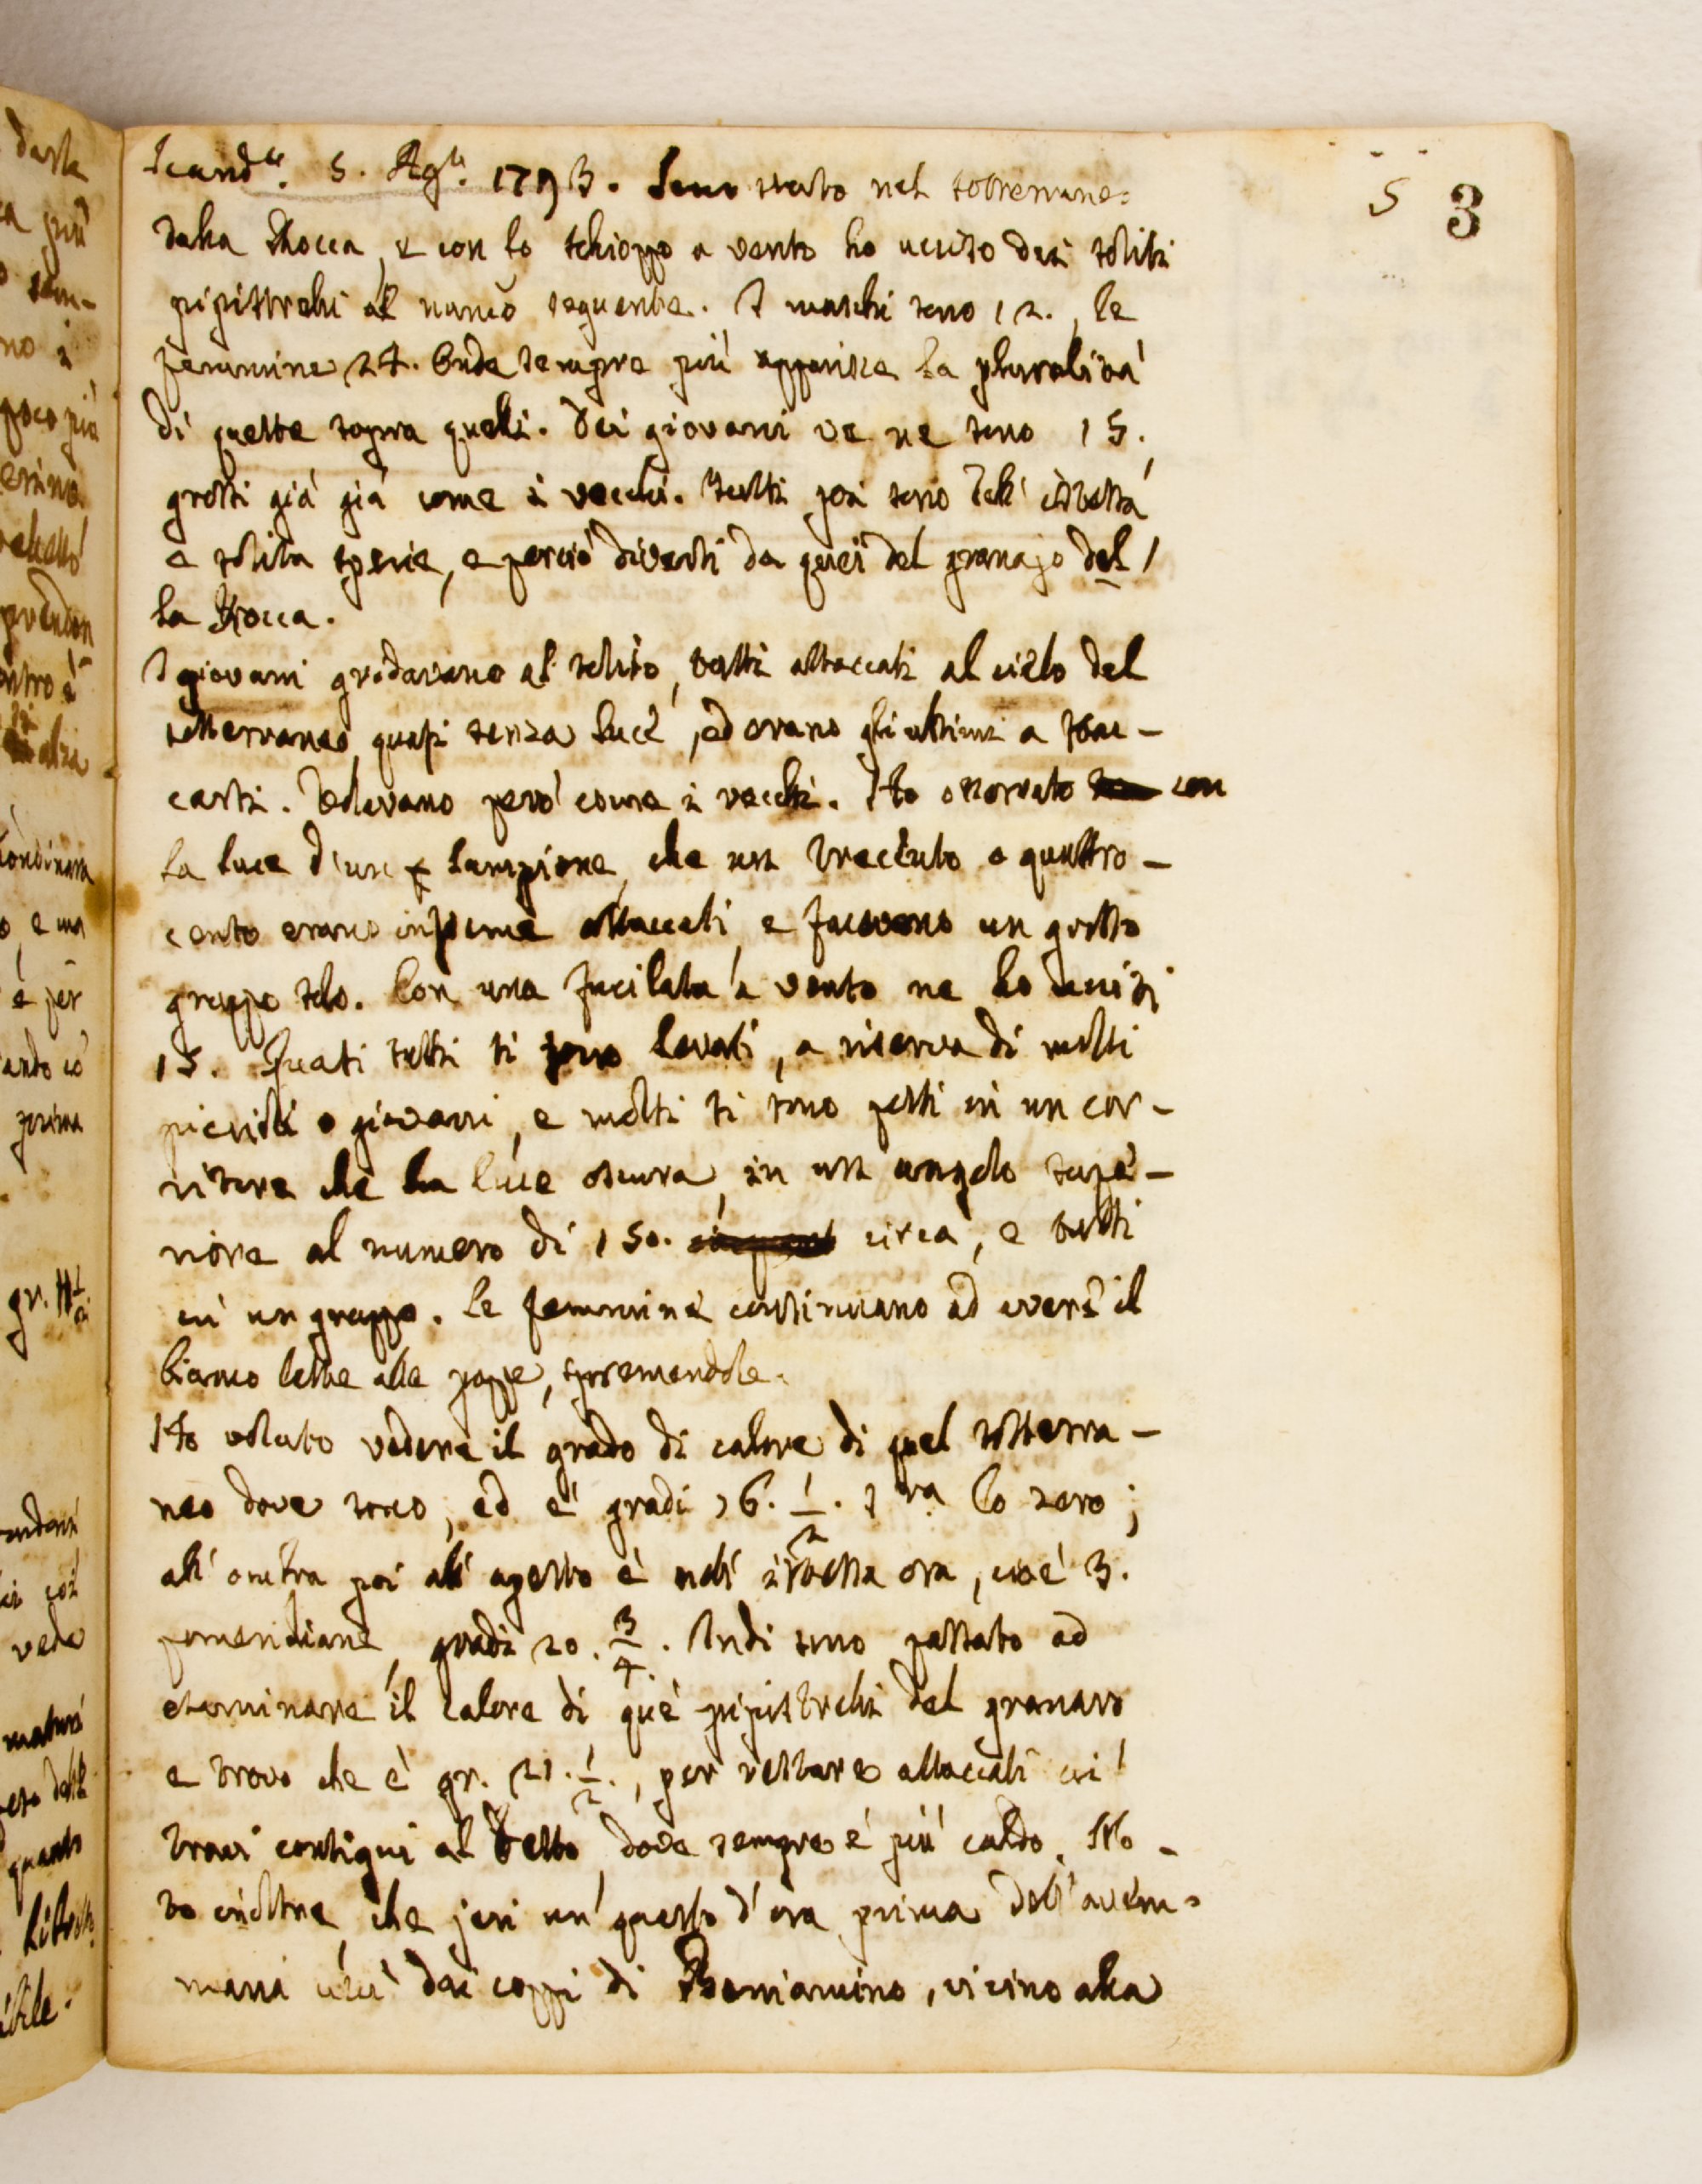 5 3
Scand.º 5. Ag.º 1793. Sono stato nel sotterraneo
della Rocca, e con lo schioppo a vento ho ucciso dei soliti
pipistrelli al numō seguente. I maschi sono 12., le
femmine 24. Onde sempre più apparisce la pluralità
di queste sopra quelli. Dei giovani ve ne sono 15.
grossi già già come i vecchi. Tutti poi sono dell' istessa
e solita specie, e perciò diversi da quei del granajo del
la Rocca.
I giovani gridavano al solito, tutti attaccati al cielo del
sotterraneo quasi senza luce, ed erano gli ultimi a stac-
carsi. Volavano però come i vecchi. Ho osservato con
la luce d'un lampione, che un trecento o quattro-
cento erano insieme attaccati, e facevano un grosso
gruppo solo. Con una fucilata a vento ne ho uccisi
15. Quasi tutti si sono levati, a riserva di molti
piccioli o giovani, e molti si sono posti in un cor-
ritore che ha luce oscura, in un angolo supe-
riore al numero di 150. circa, e tutti
in un gruppo. Le femmine continuano ad avere il
bianco latte alle poppe, spremendole.
Ho voluto vedere il grado di calore di quel sotterra-
neo dove sono, ed è gradi 16. 1/2. s.ra lo zero;
all' ombra poi all' aperto è nell' istessa ora, cioè 3.
pomeridiane, gradi 20. 3/4. Indi sono passato ad
esaminare il calore di que' pipistrelli del granaro
e trovo che è gr. 21. 1/2., per restare attaccati ai
travi contigui al tetto, dove sempre è più caldo. No-
to inoltre, che jeri un quarto d'ora prima dell'avem-
maria dai coppi di Beniamino, vicino alla